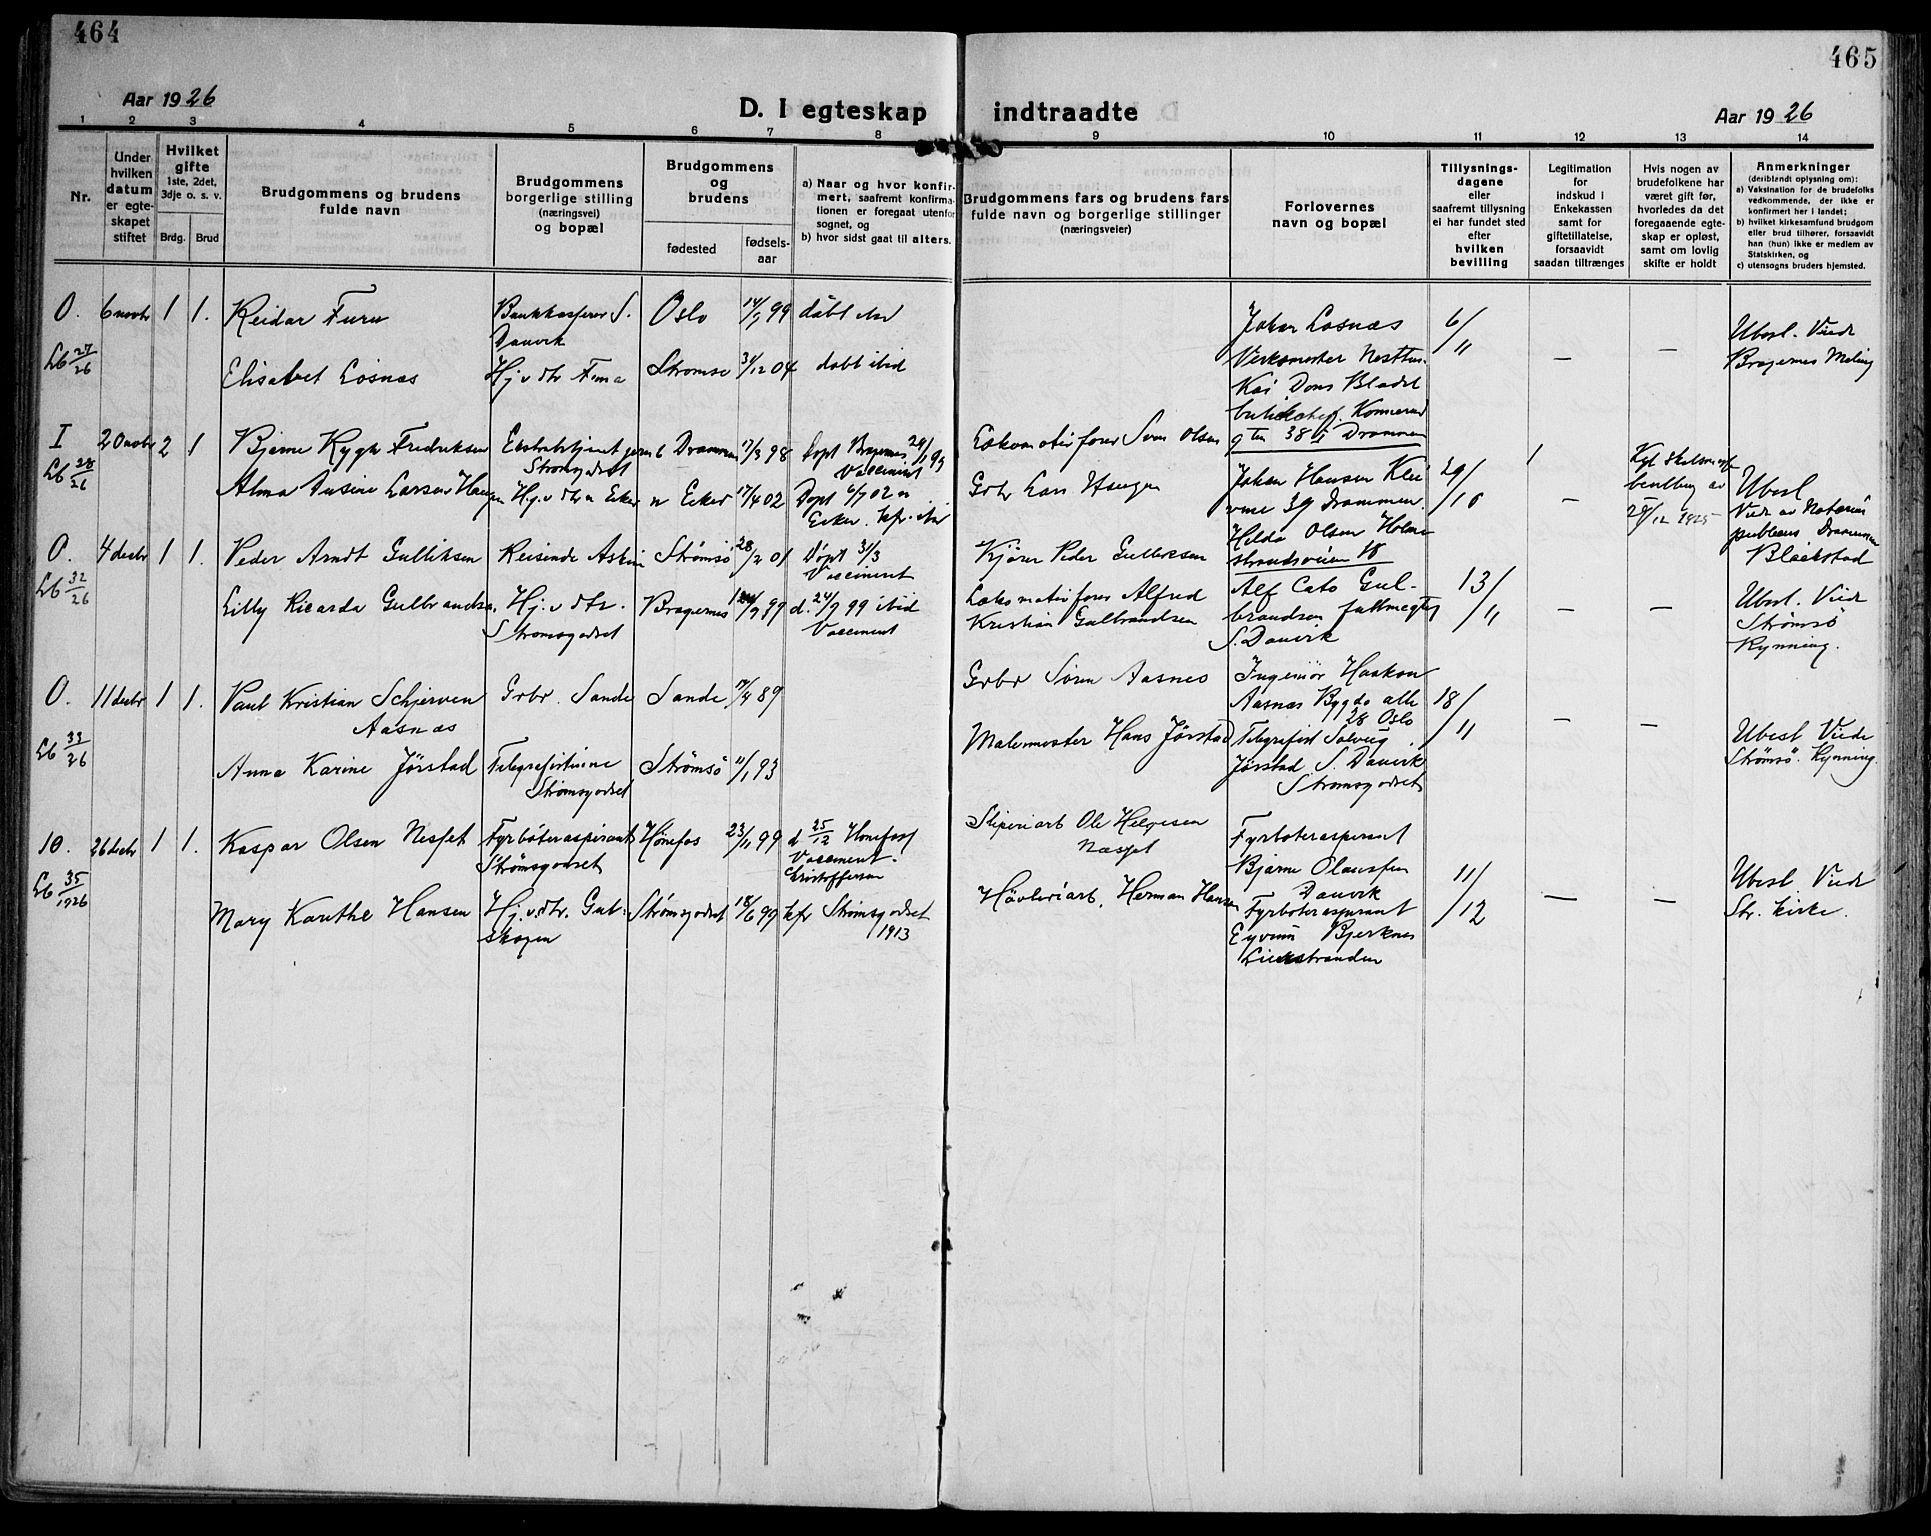 464
465
Aar 1926
D. I egteskap indtraadte
Aar 1926
1 2 3 4 5 6 7 8 9 10 11 12 13 14
Nr.
Under
hvilken
datum
er egte-
skapet
stiftet
Hvilket
gifte
1ste, 2det,
3dje o. s. v.
Brdg. Brud
Brudgommens og brudens
fulde navn
Brudgommens
borgerlige stilling
(næringsvei)
og bopæl
Brudgommens
og
brudens
fødested
fødsels-
aar
a) Naar og hvor konfir-
mert, saafremt konfirma-
tionen er foregaat utenfor
sognet, og
b) hvor sidst gaat til alters.
Brudgommens fars og brudens fars
fulde navn og borgerlige stillinger
(næringsveier)
Forlovernes
navn og bopæl
Tillysnings-
dagene
eller
saafremt tillysning
ei har fundet sted
efter
hvilken
bevilling
Legitimation
for
indskud i
Enkekassen
samt for
giftetillatelse,
forsaavidt
saadan tiltrænges
Hvis nogen av
brudefolkene har
været gift før,
hvorledes da det
foregaaende egte-
skap er opløst,
samt om lovlig
skifte er holdt
Anmerkninger
(deriblendt oplysning om):
a) Vaksination for de brudefolks
vedkommende, der ikke er
konfirmert her i landet;
b) hvilket kirkesamfund brudgom
eller brud tilhører, forsaavidt
han (hun) ikke er medlem av
Statskirken, og
c) utensogns bruders hjemsted.
O. 6 novbr 1 1. Reidar Furu
S. Danvik
Oslo 14/5 99 døbt
Lb 27/26
Elisabet Losnæs
Hj. v. dtr
Strømsø 31/12 04 døbt ibid
Johan Losnæs
Verksmester
Kai Dons Bladt
38 I Drammen
6/11 — —
Ubesl. Viede
Bragernes Meling
I 20 novbr 2 1 Bjerne Rygh Fredriksen
Strømsgodset
Drammen 17/3 98 Døpt Bragernes
Vaccinert
Lokomotivfører Sven Olsen
Lb 28/26
Alma Larsen Haugen
Hj. v. dtr Eker
Eker 17/4 02 Døpt 6/7 02
Eker. kfr.
Grbr Lars Haugen
Johan Hansen
39 Drammen.
Hilda Olsen
18
29/10 —
29/12 1925
Ubesl
Viede av Notarius
publicus Drammen
Blækstad
O. 4 decbr 1 1. Peder Arndt Gulliksen
Reisende Askim
Strømsø 28/2 01 Døpt 3/3
Vaccinert
Kjører Peder Gulliksen
Lb 32/26
Lilly Ricarda Gulbrandsen
Hj. v. dtr.
Strømsgodset
Bragernes 99 d. 24/9 99 ibid
Vaccinert
Lokomotivfører Alfred
Kristian Gulbrandsen
Alf Cato Gul-
brandsen fullmegtig
S. Danvik
13/11 — —
Ubesl. Viede
Strømsø
Rynning.
O. 11 decbr 1 1. Paul Kristian Schjerven
Aasnæs
Grbr. Sande
Sande 89
Grbr Søren Aasnes
Ingeniør Haakon
Aasnæs Bygdø alle
28 Oslo
18/11 — —
Lb 33/26
Anna Karine Jørstad
Telegrafistinne
Strømsgodset
Strømsø 11/1 93
Malermester Hans Jørstad
Telegrafist Solveig
Jørstad S. Danvik
Strømsgodset
Ubesl Viede
Strømsø. Rynning.
10. 26 decbr 1 1. Kaspar Olsen Nespet
Fyrbøteraspirant
Strømsgodset
Hønefos 23/11 99 d 25/12 Hønefoss
Vaccinert.
Kristoffersen
Sliperiarb Ole Helgesen
Næspet
Fyrbøteraspirant
Bjarne Olaussen
Danvik
Lb 35/1926
Mary Karethe Hansen
Hj. v. dtr. Gul-
skogen
Strømsgodset 18/6 99 kfr Strømsgodset
1913
Høvleriarb. Herman Hansen
Fyrbøteraspirant
Eyvinn Bjerknes
Lierstranden
11/12 — —
Ubesl. Viede
Str. kirke.